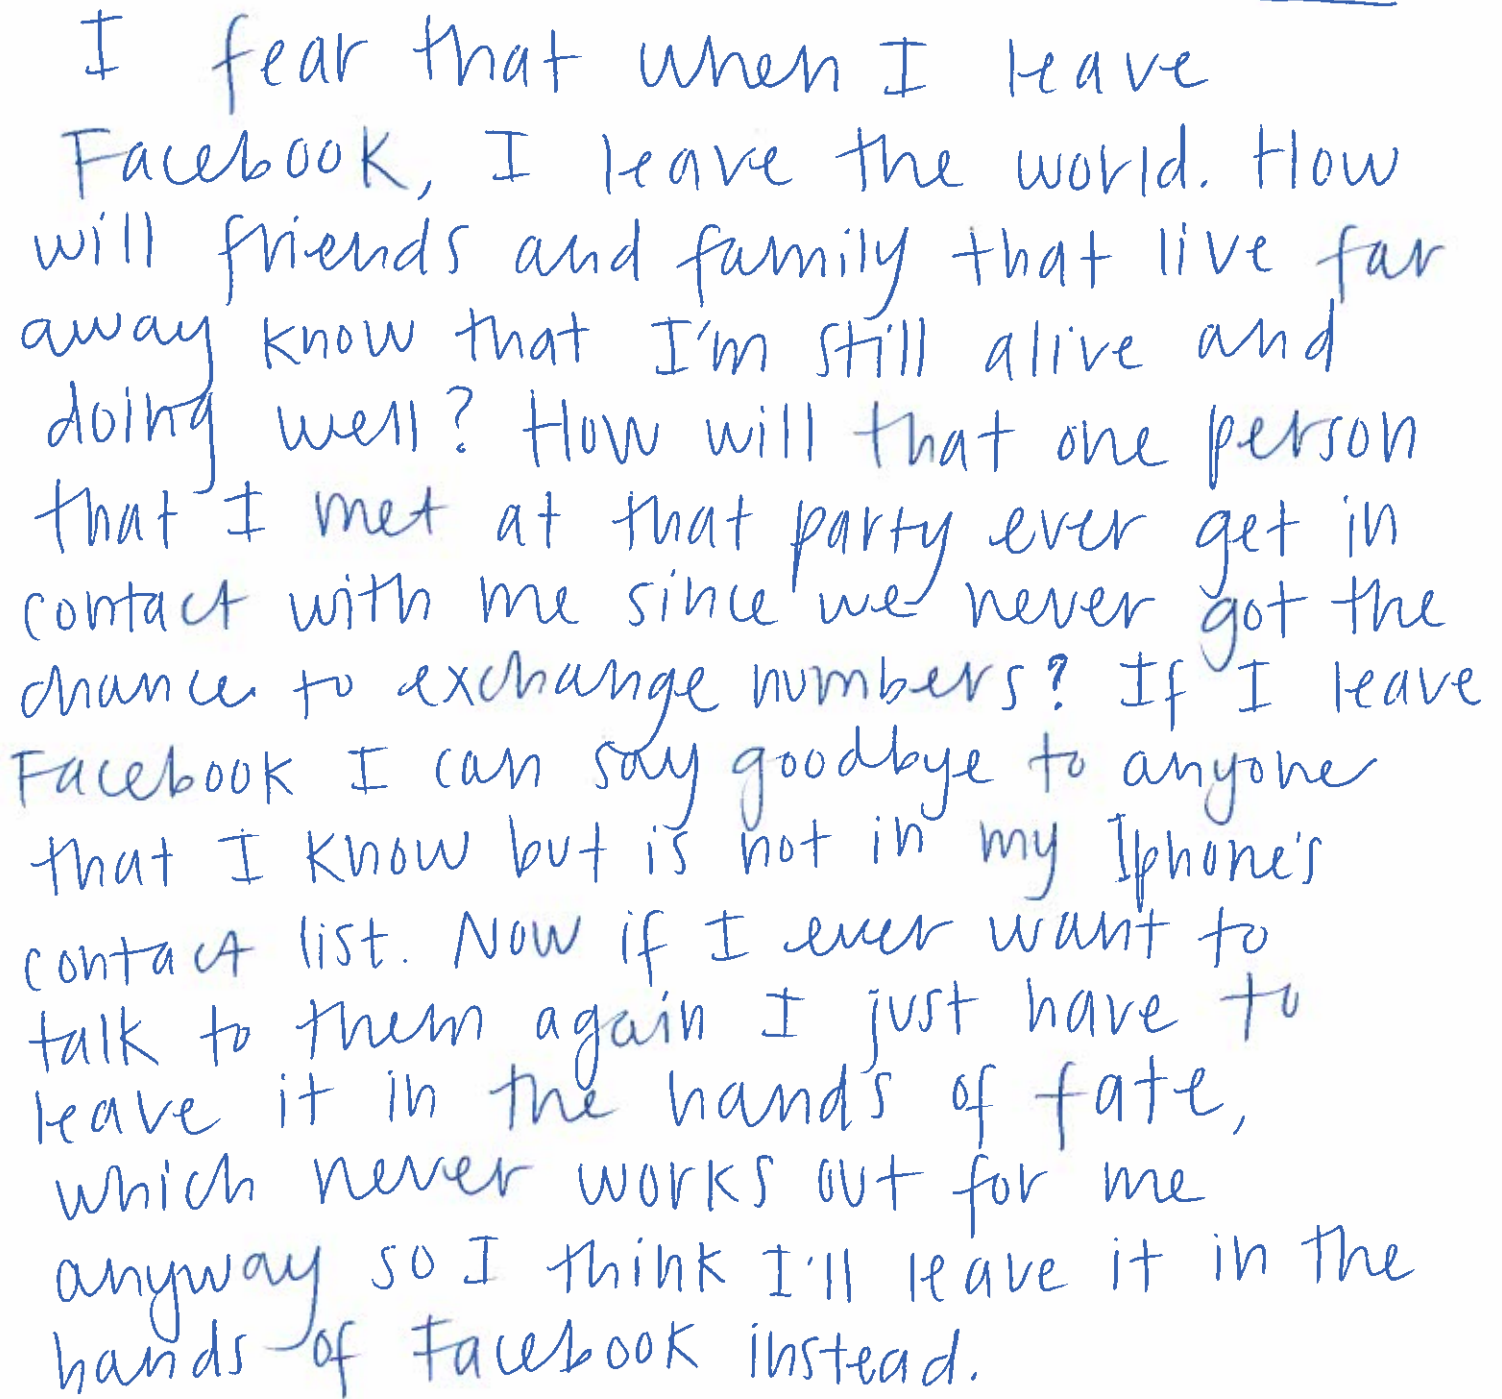 I fear that when I leave
Facebook, I leave the world. How
will friends and family that live far
away know that I'm still alive and
doing well? How will that one person
that I met at that party ever get in
contact with me since we never got the
chance to exchange numbers? If I leave
Facebook I can say goodbye to anyone
that I know but is not in my Iphone's
contact list. Now if I ever want to
talk to them again I just have to
leave it in the hands of fate,
which never works out for me
anyway so I think I'll leave it in the
hands of Facebook instead.